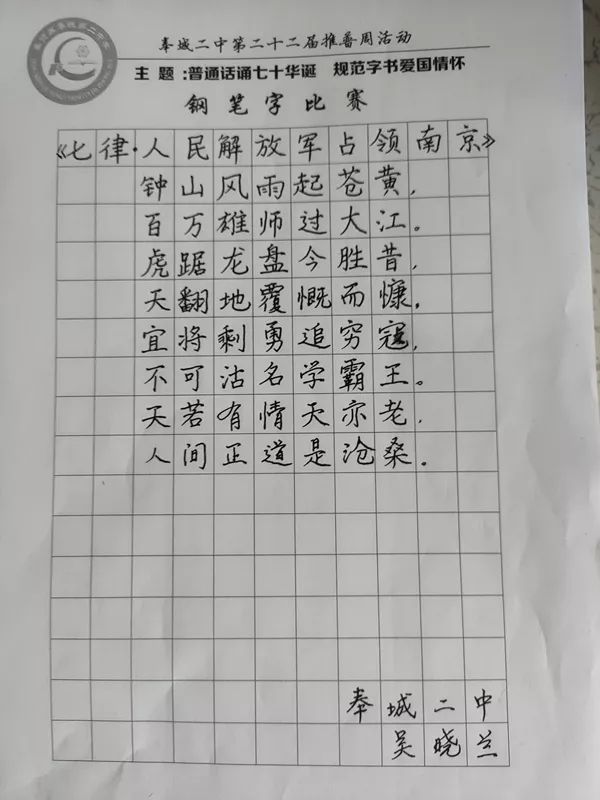 奉城二中第二十二届推普周活动
主题:普通话诵七十华诞 规范字书爱国情怀
钢笔字比赛
《七律·人民解放军占领南京》
钟山风雨起苍黄,
百万雄师过大江。
虎踞龙盘今胜昔,
天翻地覆慨而慷。
宜将剩勇追穷寇,
不可沽名学霸王。
天若有情天亦老,
人间正道是沧桑。
奉城二中
吴晓兰